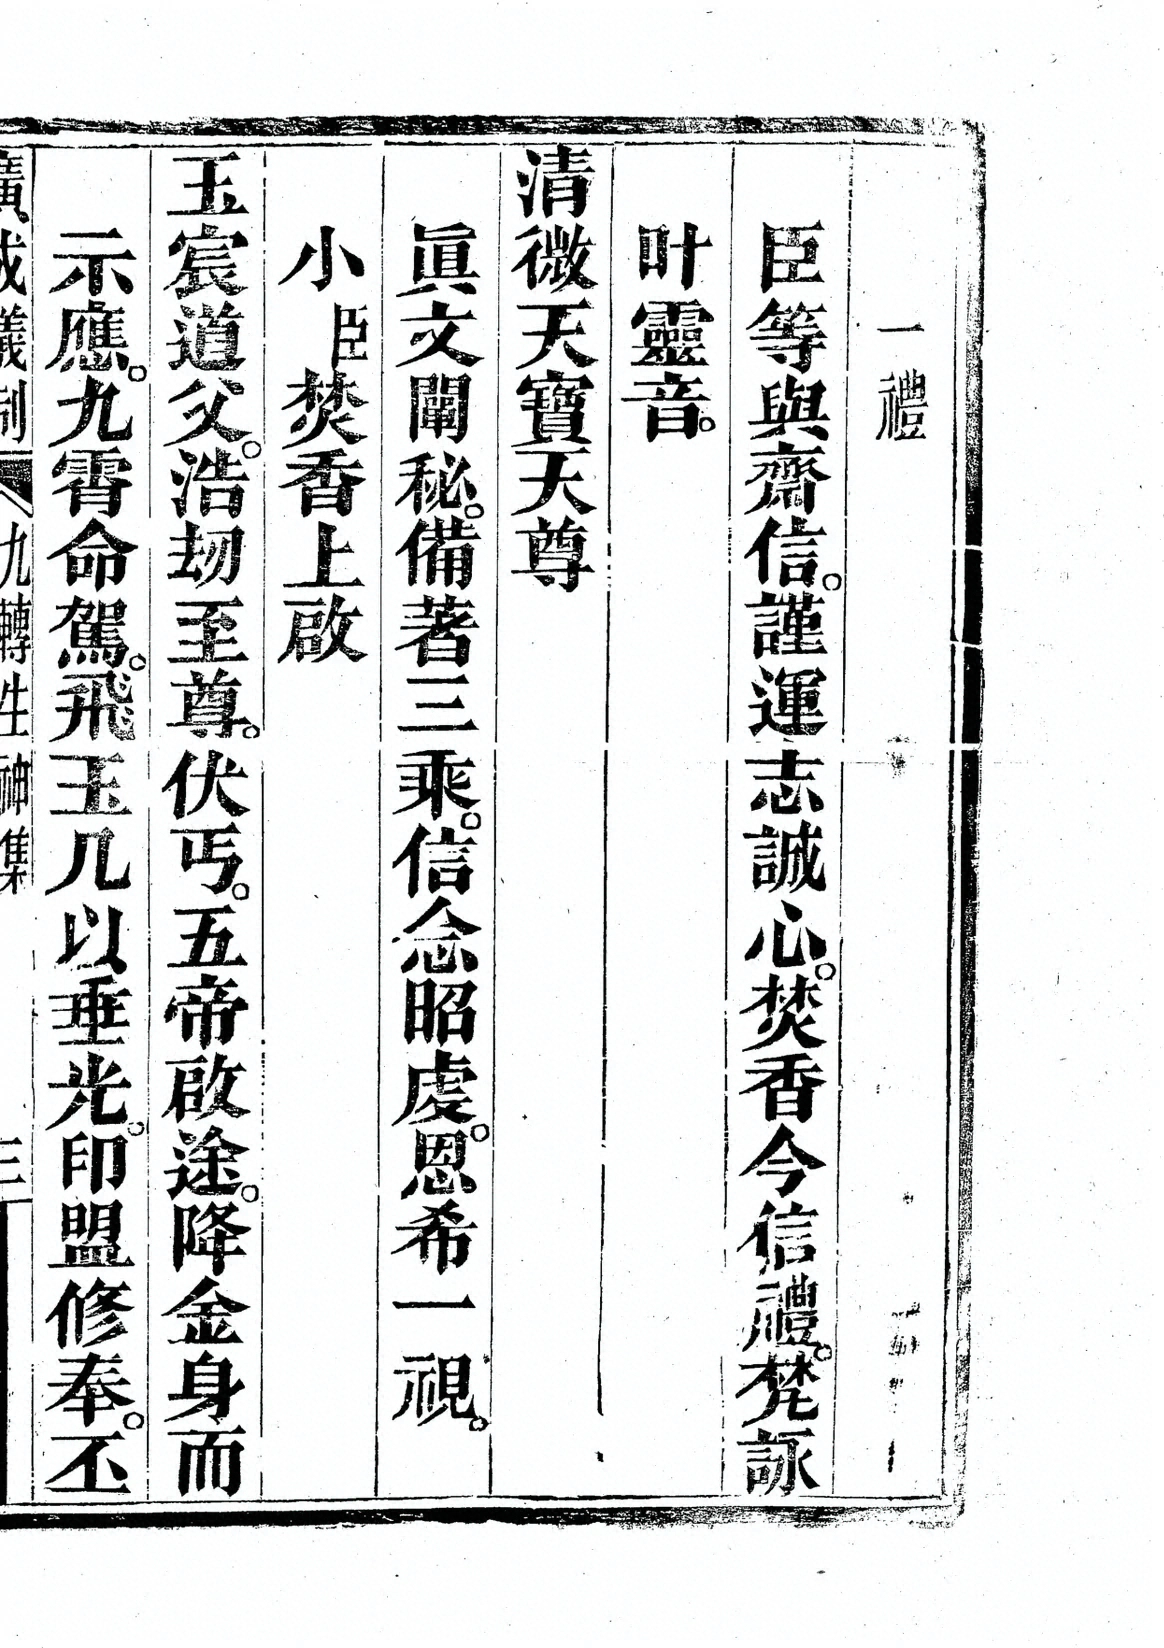 一禮
臣等與齋信。謹運志誠心。焚香今信禮。梵詠
叶靈音。
清微天寶天尊
眞文闡秘。備著三乘。信念昭虔。恩希一視。
小臣焚香上啟
玉宸道父。浩劫至尊。伏丐。五帝啟途。降金身而
示應。九霄命駕。飛玉几以垂光。印盟修奉。丕
廣成儀制 九轉生神集 三